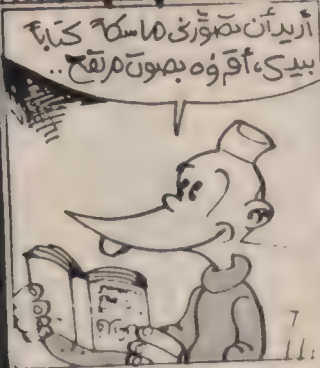 أريد أن تصوّرني ماسكاً كتاباً
بيدي، أقرؤه بصوت مرتفع..